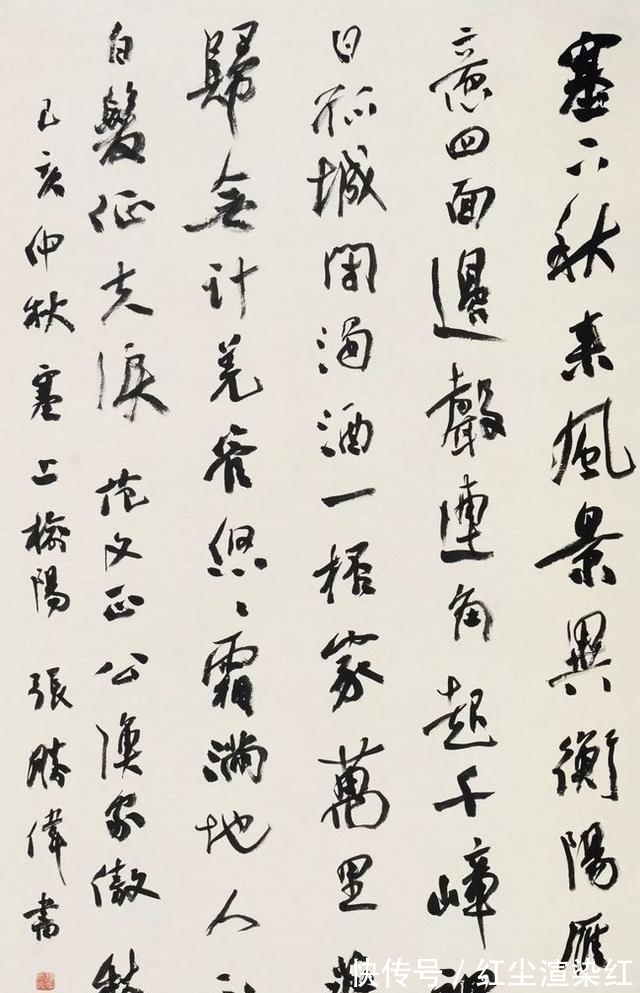 塞下秋来風景異衡陽雁
意四面邊聲連角起千嶂
日孤城閉濁酒一桮家萬里燕
歸無計羌管悠〻霜滿地人
白髮征夫淚 范文正公漁家傲秋
己亥仲秋塞上榆陽 張勝偉書
快传号/红尘渲染红